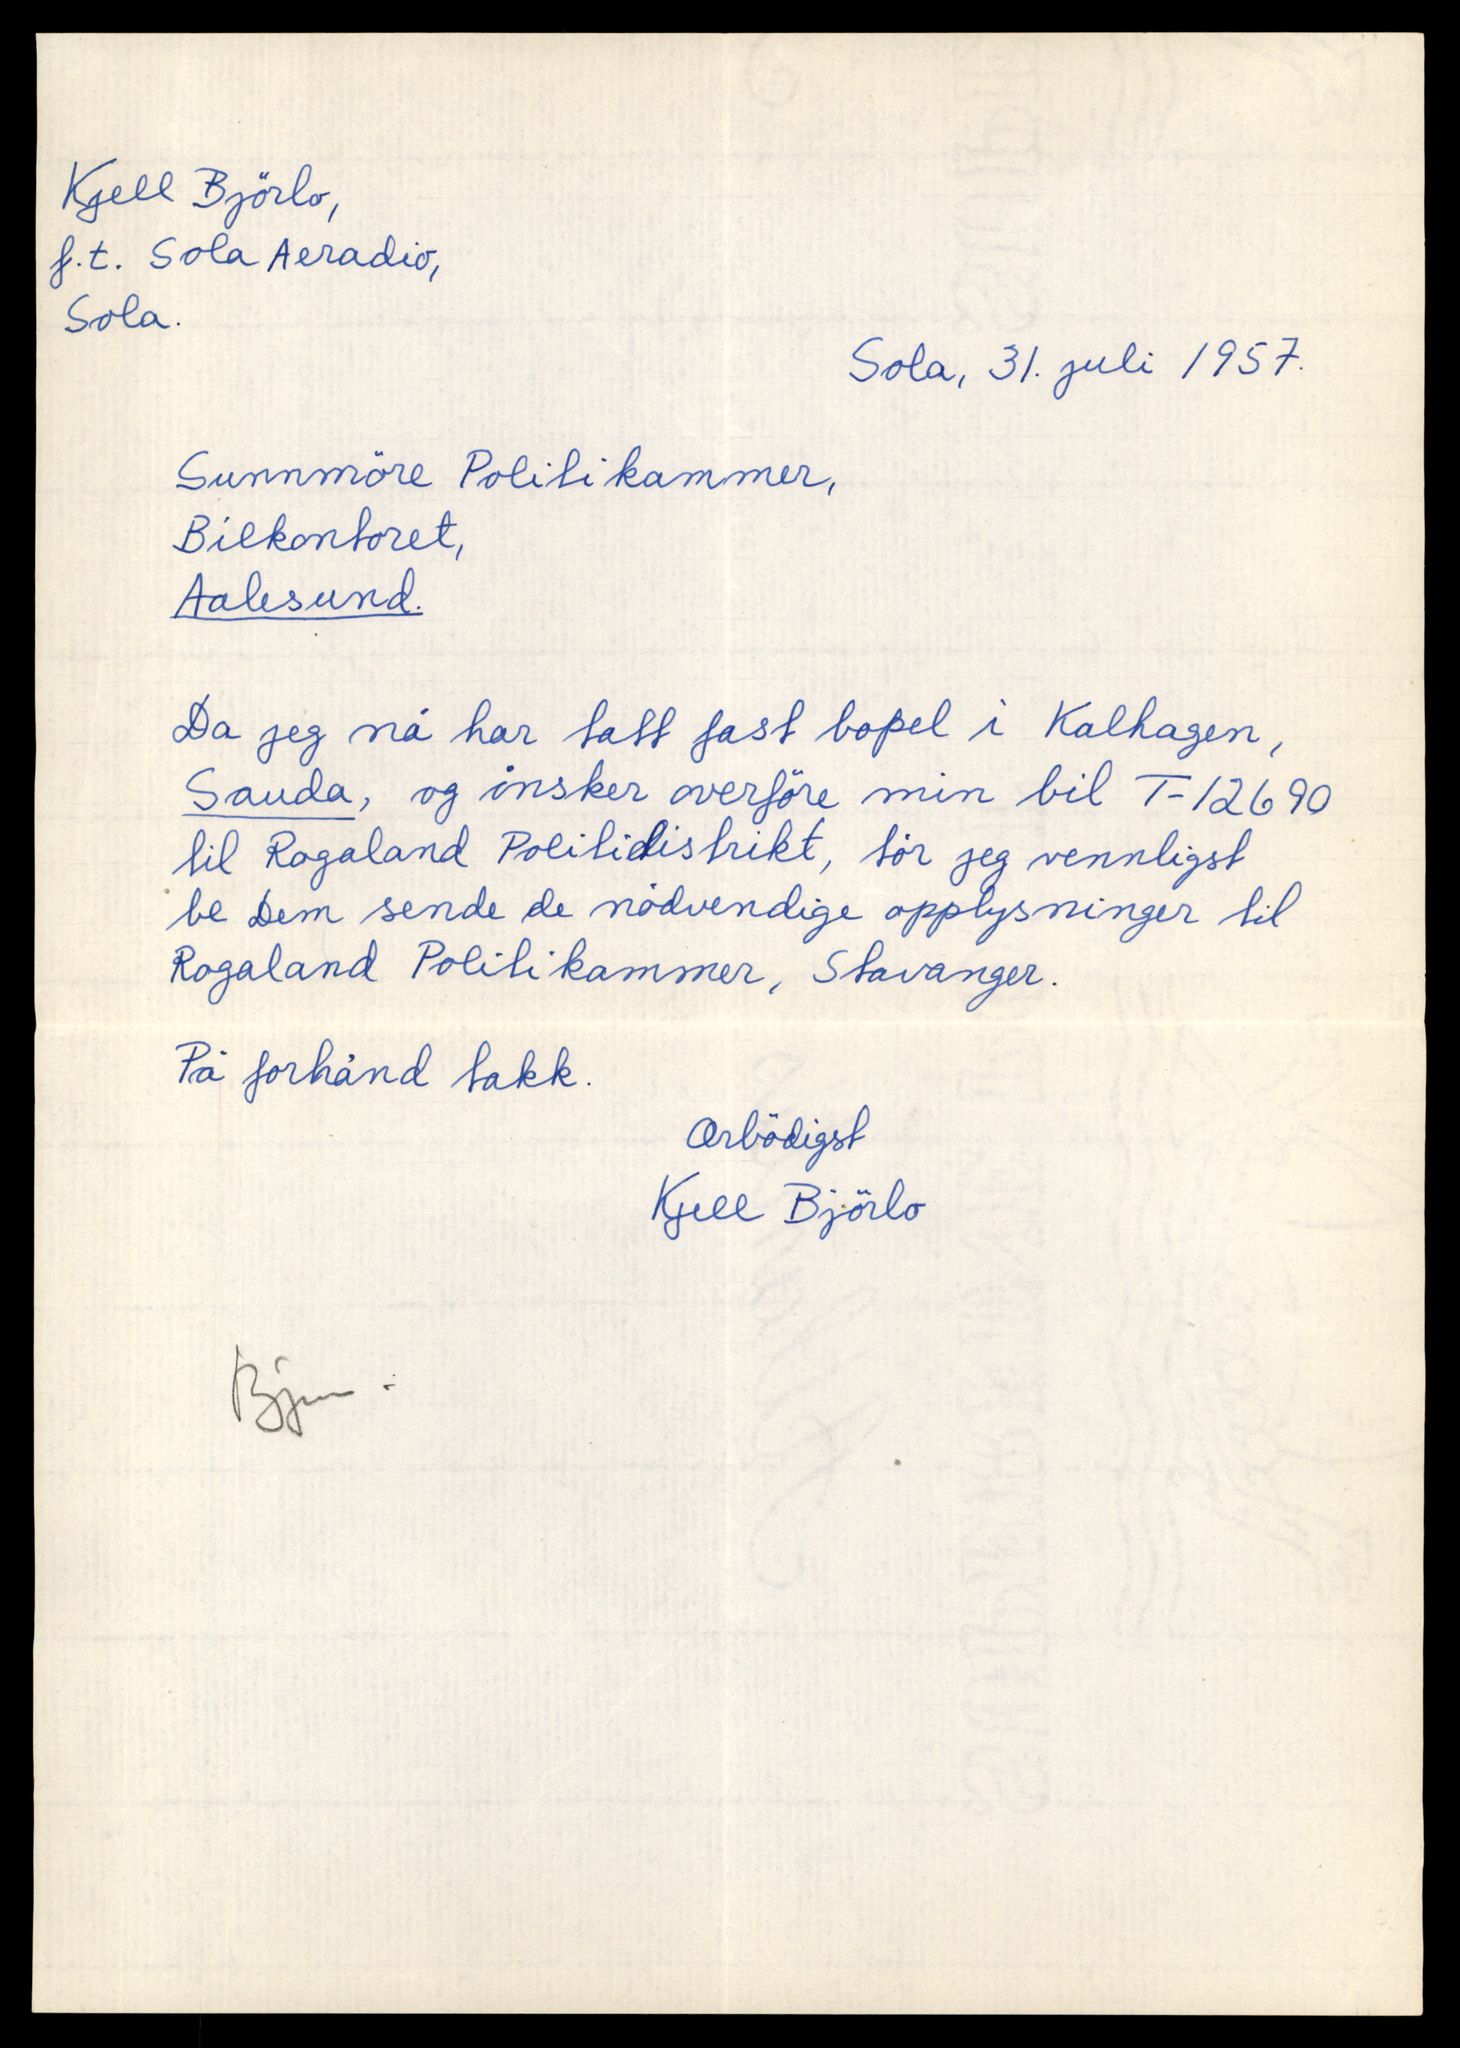 Kjell Björlo,
f.t. Sola Aeradio,
Sola.
Sola, 31. juli 1957.
Sunnmöre Politikammer,
Bilkontoret,
Aalesund.
Da jeg nå har tatt fast bopel i Kalhagen,
Sauda, og önsker overföre min bil T-12690
til Rogaland Politidistrikt, tör jeg vennligst
be Dem sende de nödvendige opplysninger til
Rogaland Politikammer, Stavanger.
På forhånd takk.
Ærbödigst
Kjell Björlo